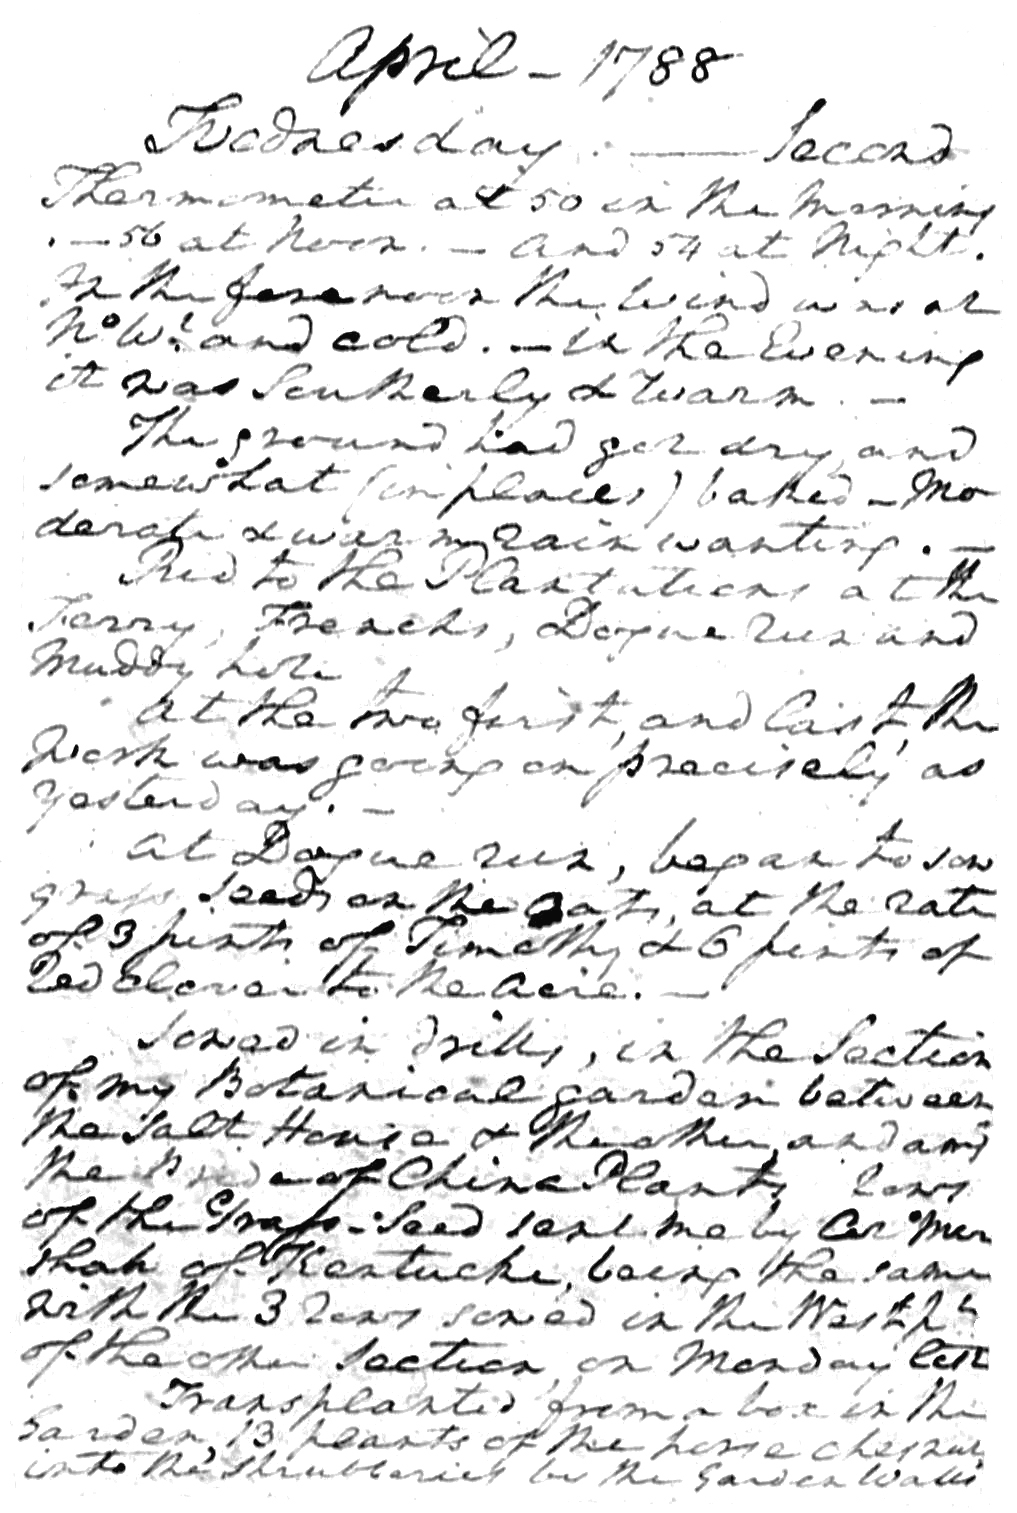 April - 1788
Wednesday. — Second
Thermometer at 50 in the Morning
. - 56 at Noon. - and 54 at Night.
In the forenoon the Wind was at
No. Wt. and cold. - in the Evening
it was Southerly & Warm. -
The ground had got dry, and
somewhat (in places) baked - Mo
derate & warm rain wanting. -
Rid to the Plantations at the
Ferry, Frenchs, Dogue run and
Muddy hole
At the two first, and last, the
Work was going on precisely as
yesterday. -
At Dogue run, began to sow
grass seeds on the Oats, at the rate
of 3 pints of Timothy & 6 pints of
Red clover to the Acre. -
Sowed in drills, in the Section
of my Botanical garden between
the Salt House & the other, and
the of China Plants rows
of the Grass-Seed sent me by Colo. Mar
shall of Kentucke, being the same
with the 3 rows sowed in the West
of the other Section, on Monday last
Transplanted from a box in the
Garden, 13 plants of the horse chesnut
into the shrubberies by the Garden Walls